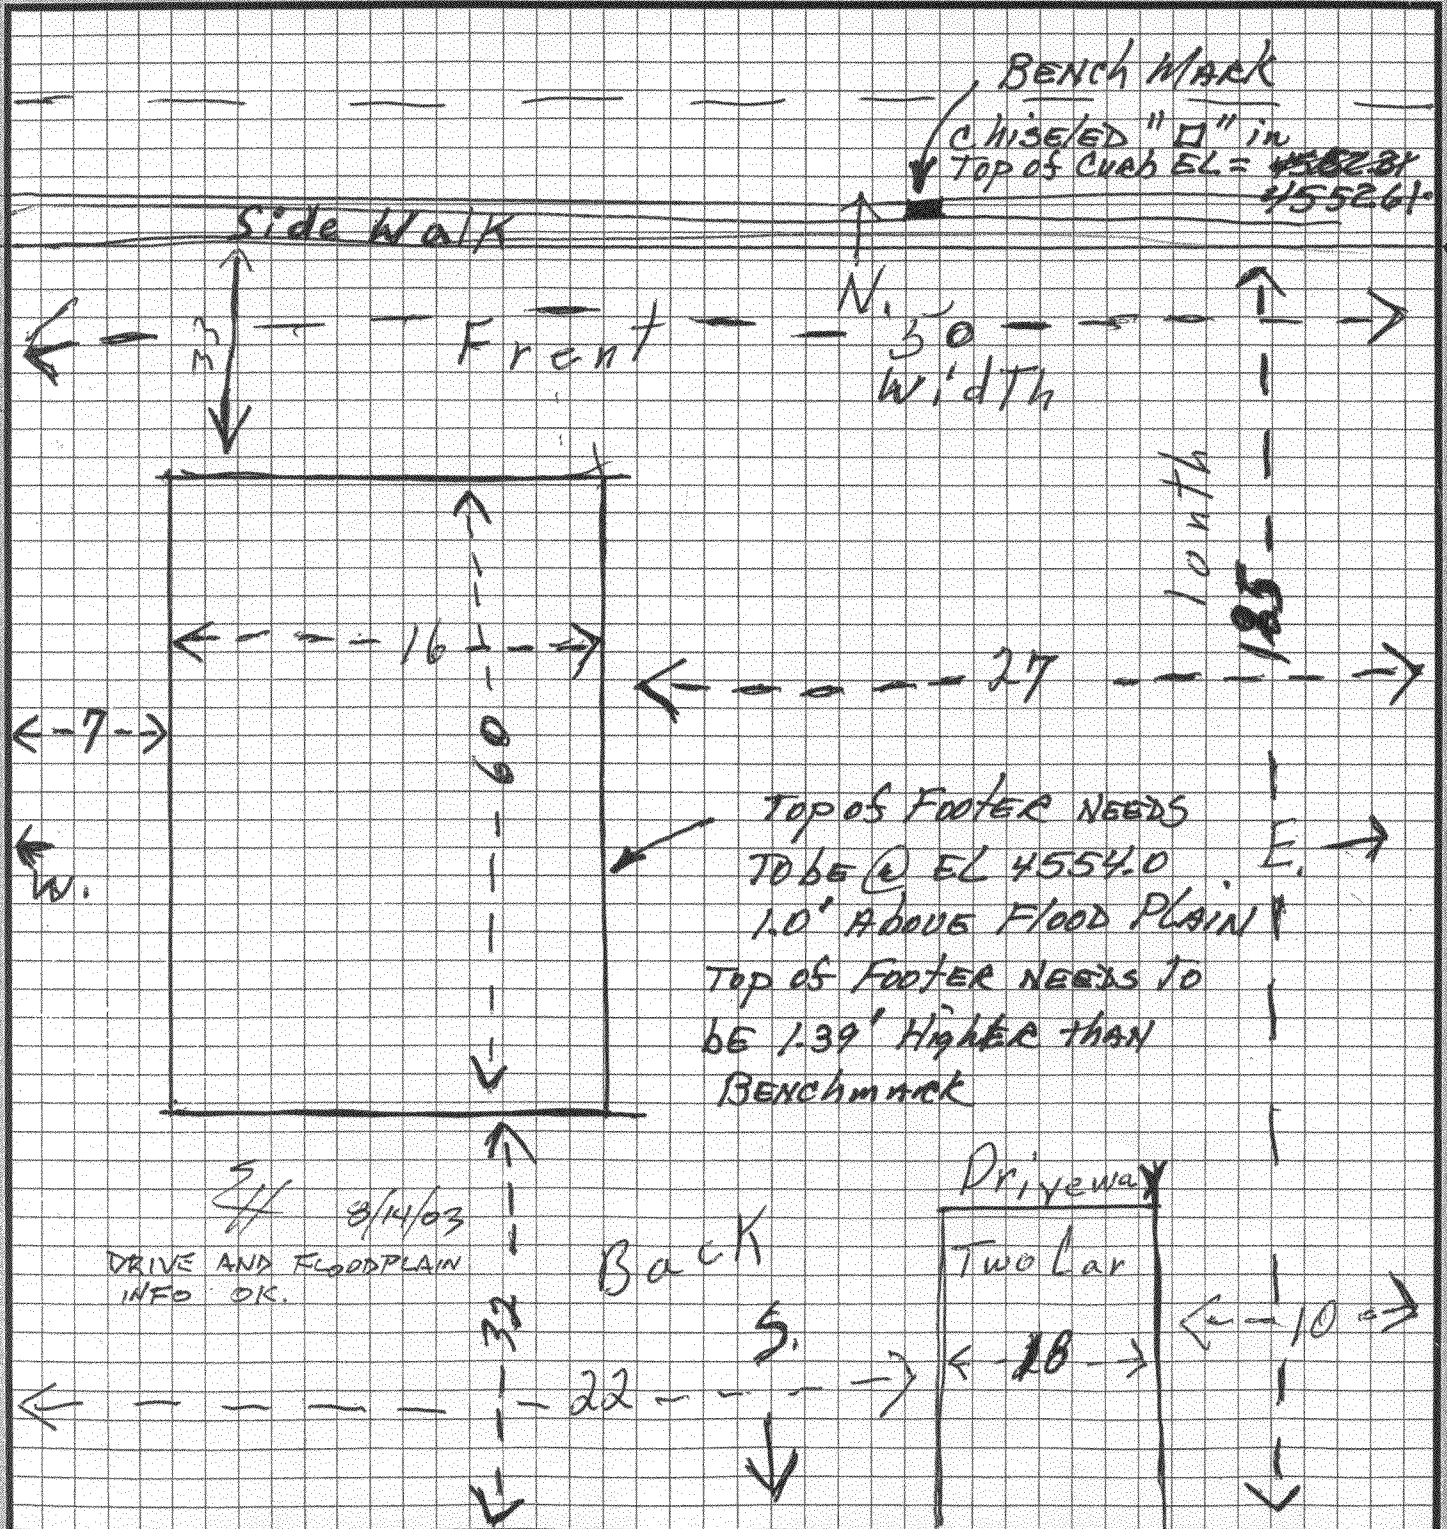 BENCH MARK
CHISELED "□" in
TOP of Curb EL =
4552.61
Side Walk
N.
33
Frent
50
WidTh
lonth
125
16
27
7
60
TOP of FOOTER NEEDS
TO bE @ EL 4554.0
1.0' AbOVE FLOOD PLAIN
E.
W.
TOP of FOOTER NEEDS TO
bE 1.39' HighER thAN
BENChmARK
Driveway
8/14/03
DRIVE AND FLOODPLAIN
INFO OK.
BacK
Two Car
S.
32
10
18
22